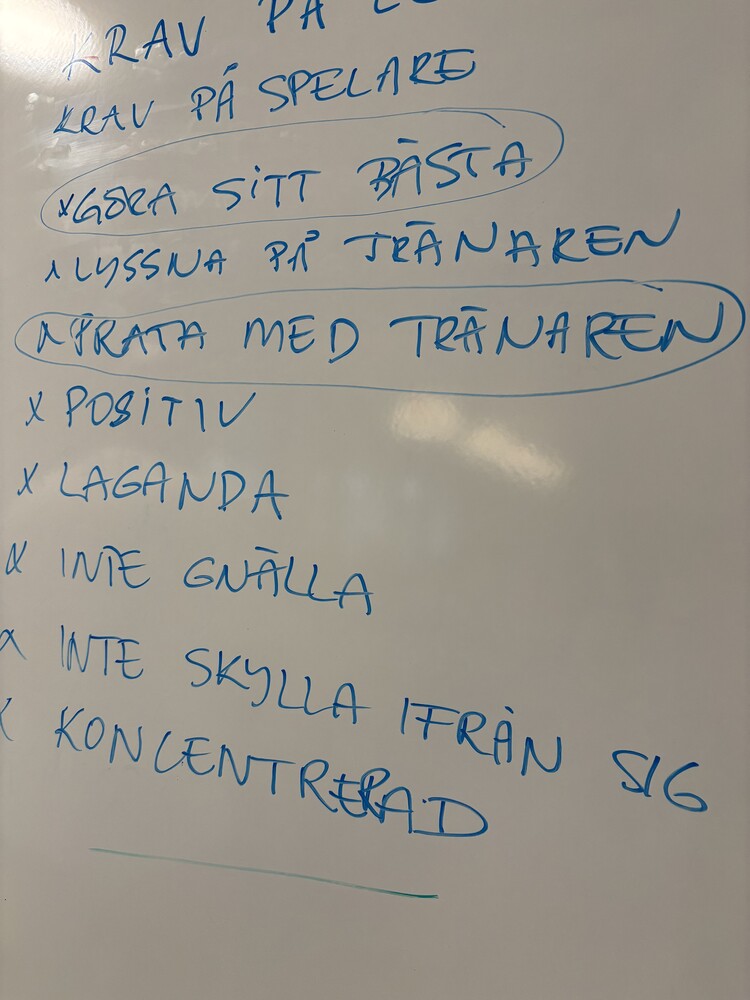 KRAV PÅ
KRAV PÅ SPELARE
x GÖRA SITT BÄSTA
x LYSSNA PÅ TRÄNAREN
x PRATA MED TRÄNAREN
x POSITIV
x LAGANDA
x INTE GNÄLLA
x INTE SKYLLA IFRÅN SIG
x KONCENTRERAD